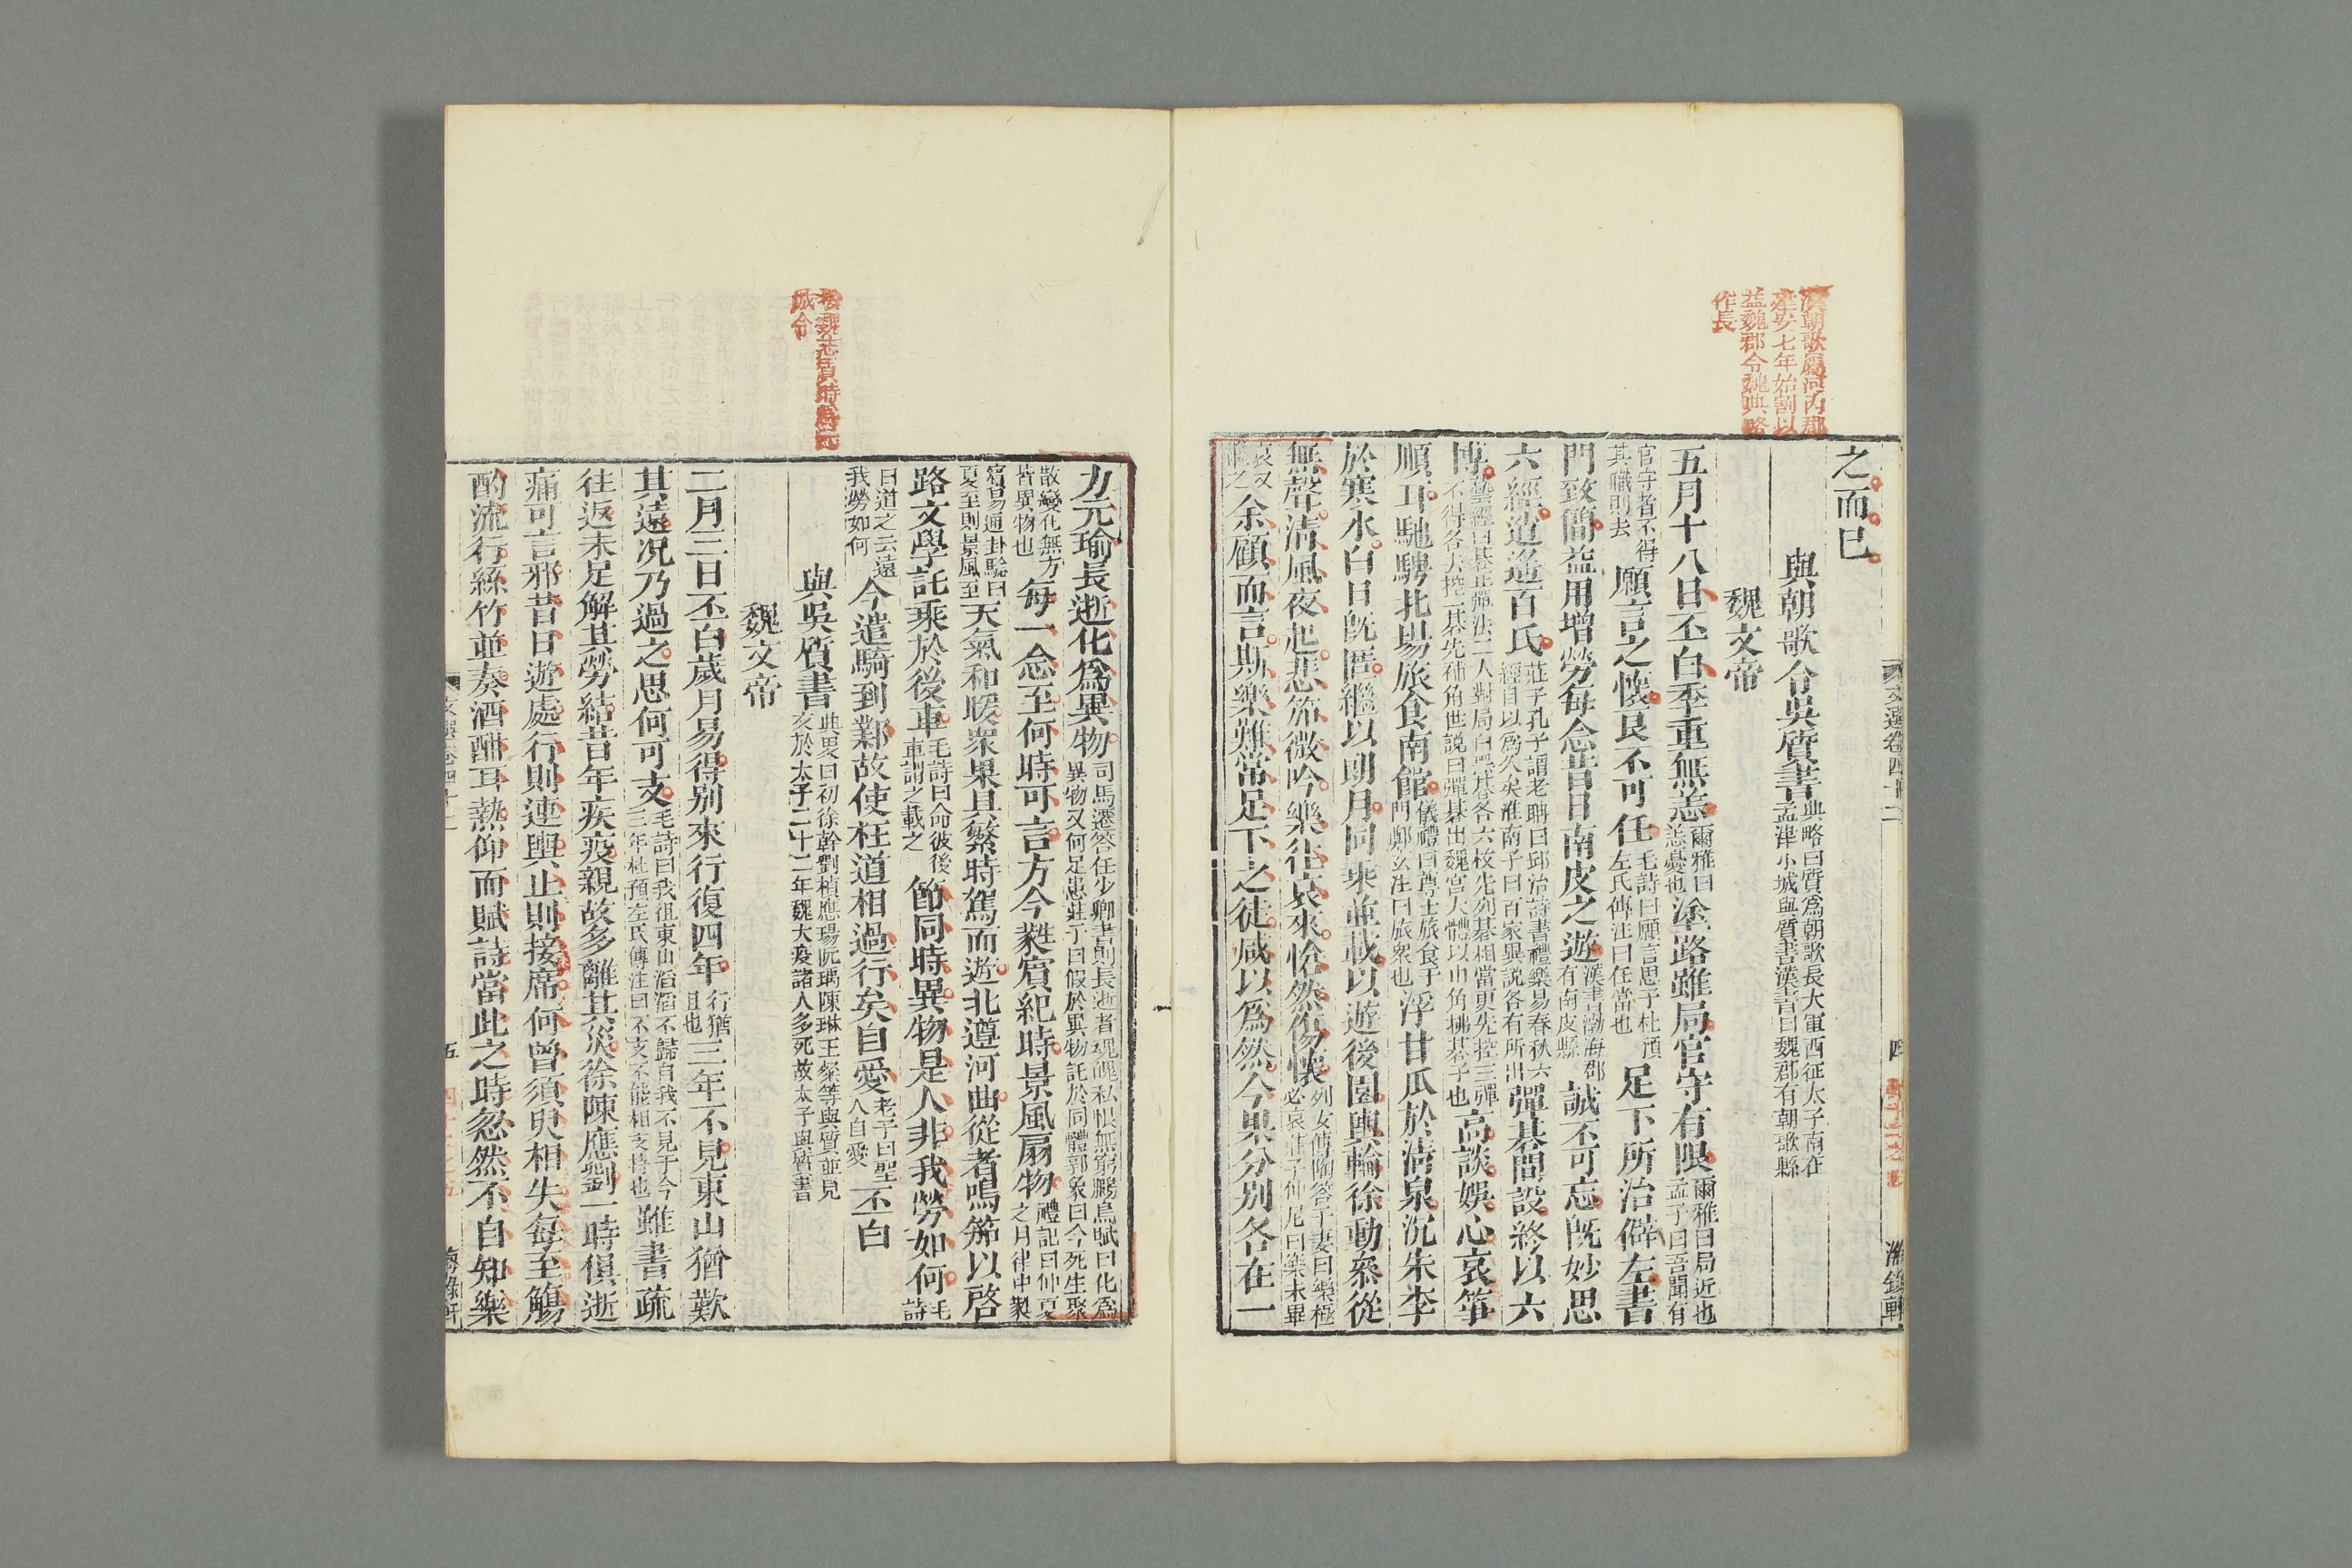 漢朝歌屬河內郡
建安七年始割以
益魏郡令魏典略
作長
文選卷四十二
四
海錄軒
之而已
與朝歌令吳質書典略曰質爲朝歌長大軍西征太子南在孟津小城與質書漢書曰魏郡有朝歌縣
魏文帝
五月十八日丕白季重無恙爾雅曰恙憂也塗路雖局官守有限爾雅曰局近也孟子曰吾聞有
官守者不得其職則去願言之懷良不可任毛詩曰願言思子杜預左氏傳注曰任當也足下所治僻左書
門致簡益用增勞每念昔日南皮之遊漢書渤海郡有南皮縣誠不可忘旣妙思
六經逍遙百氏莊子孔子謂老聃曰邱治詩書禮樂易春秋六經自以爲久矣淮南子曰百家異說各有所出彈碁間設終以六
博藝經曰碁正彈法二人對局白黑碁各六枚先列碁相當更先控三彈不得各大控一碁先補角世說曰彈碁出魏宮大體以巾角拂碁子也高談娛心哀箏
順耳馳騁北場旅食南館儀禮曰尊士旅食于門鄭玄注曰旅衆也浮甘瓜於清泉沉朱李
於寒水白日旣匿繼以朗月同乘並載以遊後園輿輪徐動叅從
無聲清風夜起悲笳微吟樂往哀來愴然傷懷列女傳陶答子妻曰樂極必哀莊子仲尼曰樂未畢
哀又繼之余顧而言斯樂難常足下之徒咸以爲然今果分別各在一
按魏志質時爲元
城令
力元瑜長逝化爲異物司馬遷答任少卿書則長逝者魂魄私恨無窮鵩鳥賦曰化爲異物又何足患莊子曰假於異物託於同體郭象曰今死生聚
散變化無方皆異物也每一念至何時可言方今蕤賓紀時景風扇物禮記曰仲夏之月律中蕤
賓易通卦驗曰夏至則景風至天氣和暖衆果具繁時駕而遊北遵河曲從者鳴笳以啓
路文學託乘於後車毛詩曰命彼後車謂之載之節同時異物是人非我勞如何毛詩
曰道之云遠我勞如何今遣騎到鄴故使枉道相過行矣自愛老子曰聖人自愛不白
與吳質書典畧曰初徐幹劉楨應瑒阮瑀陳琳王粲等與質並見友於太子二十二年魏大疫諸人多死故太子與質書
魏文帝
二月三日丕白歲月易得別來行復四年行猶且也三年不見東山猶歎
其遠况乃過之思何可支毛詩曰我徂東山滔滔不歸自我不見于今三年杜預左氏傳注曰不支不能相支持也雖書疏
往返未足解其勞結昔年疾疫親故多離其災徐陳應劉一時俱逝
痛可言邪昔日遊處行則連輿止則接席何曾須臾相失每至觴
酌流行絲竹並奏酒酣耳熱仰而賦詩當此之時忽然不自知樂
文選卷四十二
五
海錄軒